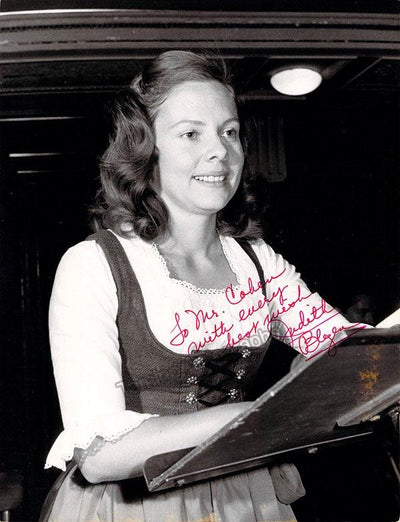 To Mr. Cohen
with every
best wish
Judith
Blegen